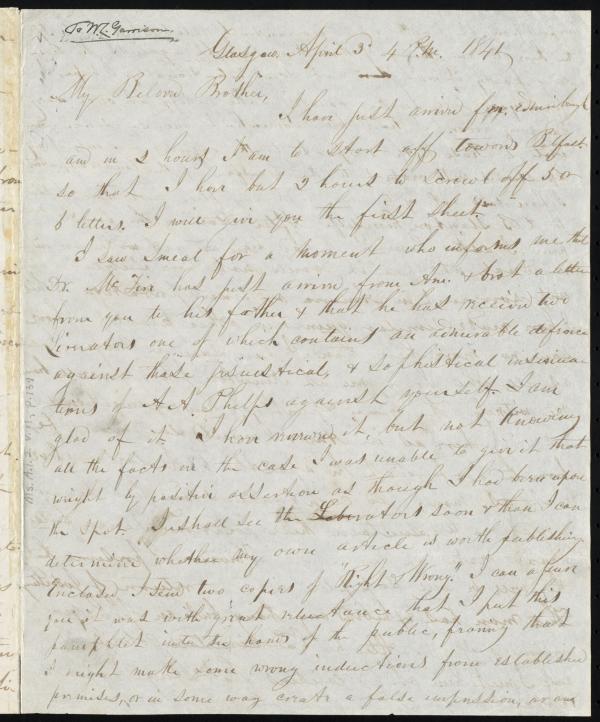 To W. L. Garrison.
Glasgow, April 3d 4 P.M. 1841
My Belovd Brother,
I have just arrivd from Edinburgh
and in 2 hours I am to start off towards Belfast
so that I have but 2 hours to scrawl off 5 or
6 letters. I will give you the first sheet.
I saw Smeal for a moment who informs me that
Dr. has just arrived from Am. & brot a letter
from you to his father & that he has received two
Liberators one of which contains an admirable defence
against those Jesuistical, & Sophistical insinua
tions of A. A. Phelps against yourself. I am
glad of it. I have it, but not knowing
all the facts in the case I was unable to give it that
weight by positive assertions as though I had been upon
the spot. I shall see the Liberators soon & than I can
determine whether my own article is worth publishing
Enclosed I send two copies of "Right & Wrong." I can assure
you it was with great reluctance that I put this
pamphlet into the hands of the public, fearing that
I might make some wrong inductions from established
premises, or in some way create a false impression, or any